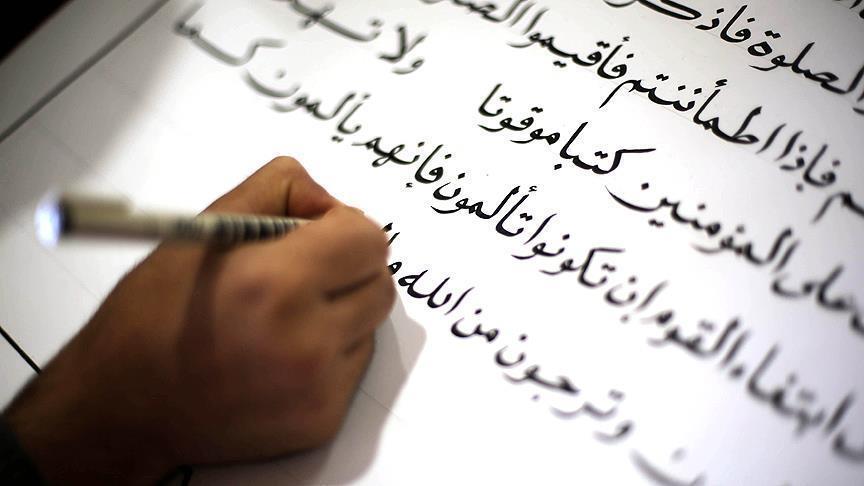 الصلوة فاذكر
فاذا اطمأننتم فأقيموا
على المؤمنين كتبا موقوتا ولا
ابتغاء القوم ان تكونوا تألمون فإنهم يألمون كما
وترجون من الله